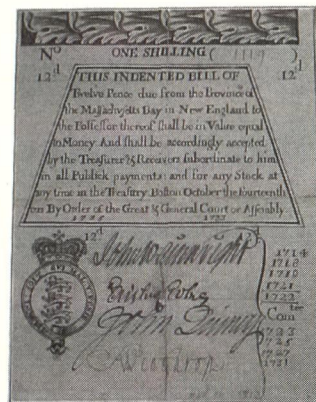 No ONE SHILLING (
12d THIS INDENTED BILL OF 12d
Twelve Pence due from the Province of
the Massachusetts Bay in New England to
the Possessor thereof shall be in Value equal
to Money And shall be accordingly accepted
by the Treasurer & Receivers subordinate to him
in all Publick payments and for any Stock at
any time in the Treasury Boston October the fourteenth
By Order of the Great & General Court or Assembly
12d
John Wainwright
John Quincy
1714
1718
1719
1721
1722
Com
1723
1725
1727
1731